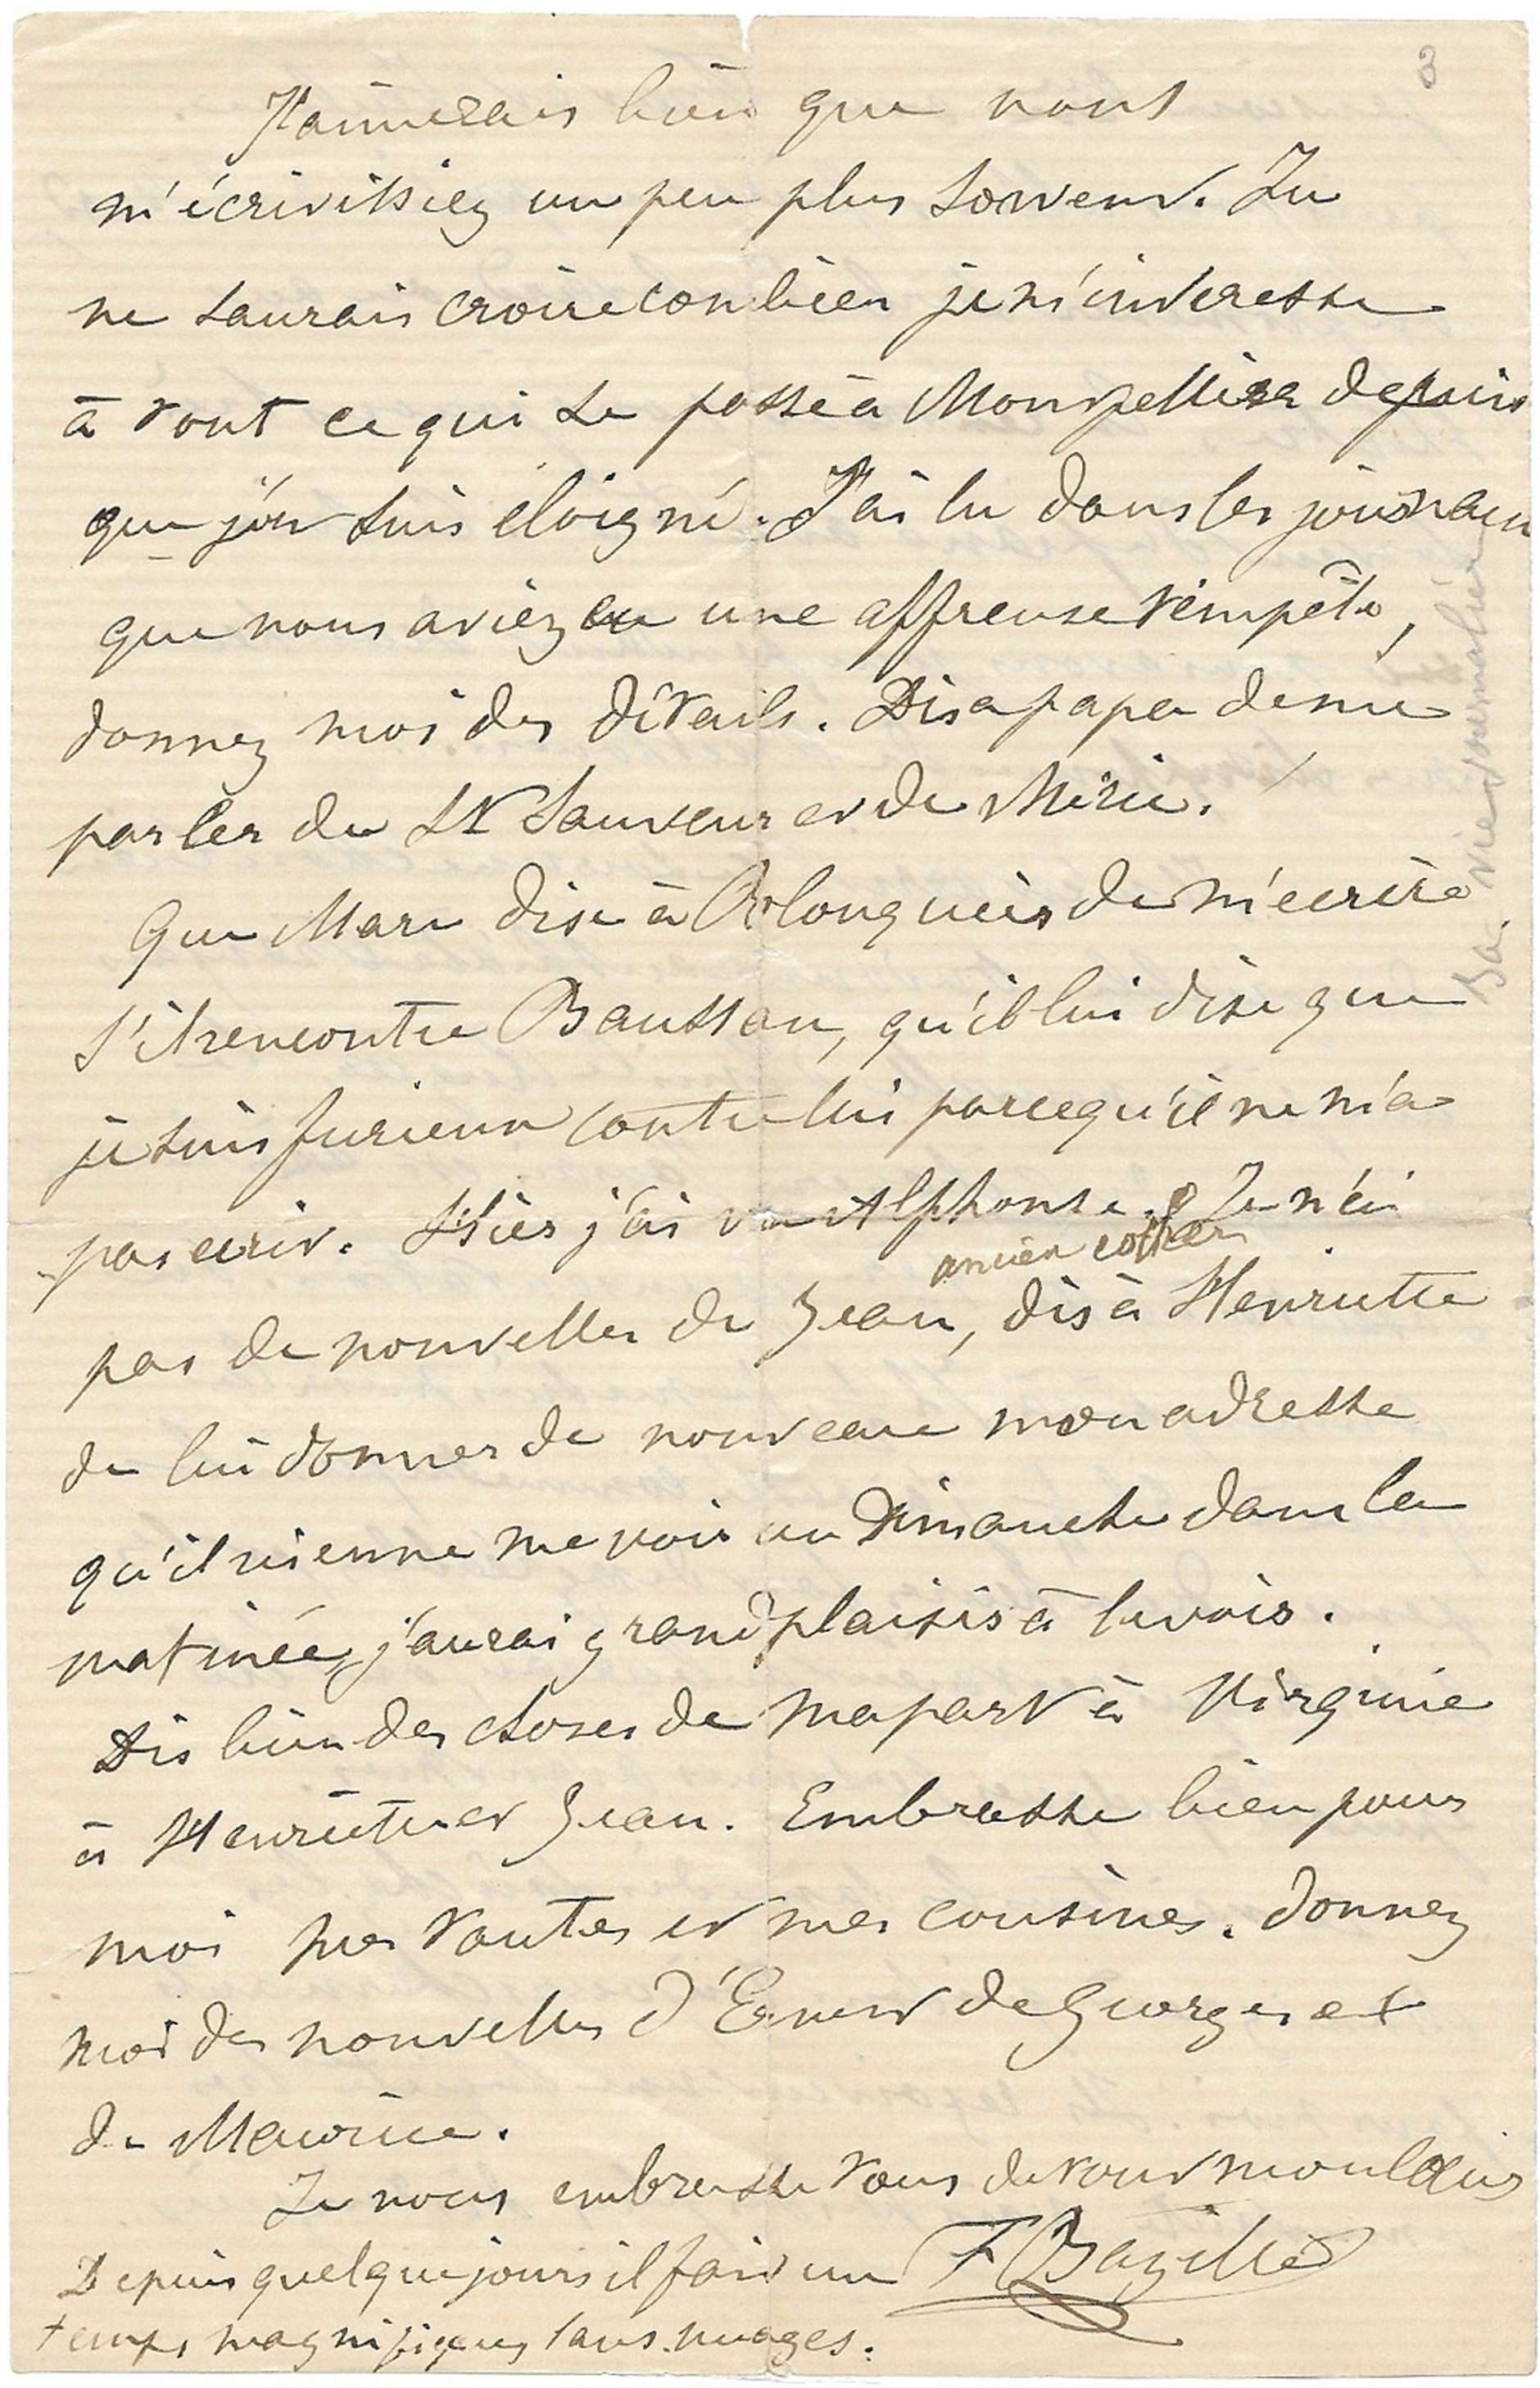 3
J'aimerais bien que vous
m'écrivissiez un peu plus souvent. Tu
ne saurais croire combien je m'interesse
à tout ce qui se passe à Montpellier depuis
que j'en suis éloigné. J'ai lu dans les journaux
que vous aviez eu une affreuse tempête,
donnez moi des détails. Dis a papa de me
parler du St Sauveur et de Méric.
Que Marc dise à Rolongueis de m'ecrire
s'il rencontre Baussan, qu'il lui dise que
je suis furieux contre lui parcequ'il ne m'a
pas ecrit. Hier j'ai vu Alphonse. Je n'ai
ancien cocher
pas de nouvelles de Jean, dis à Henriette
de lui donner de nouveau mon adresse
qu'il vienne me voir un Dimanche dans la
matinée, j'aurai grand plaisir à le voir.
Dis bien des choses de ma part à Virginie
à Henriette et Jean. Embrasse bien pour
moi mes tantes et mes cousines. Donnez
moi des nouvelles d'Ernest de Georges et
de Maurice.
Je vous embrasse tous de tout mon cœur
F Bazille
Depuis quelque jours il fait un
temps magnifique, sans nuages.
Sa vie journalière